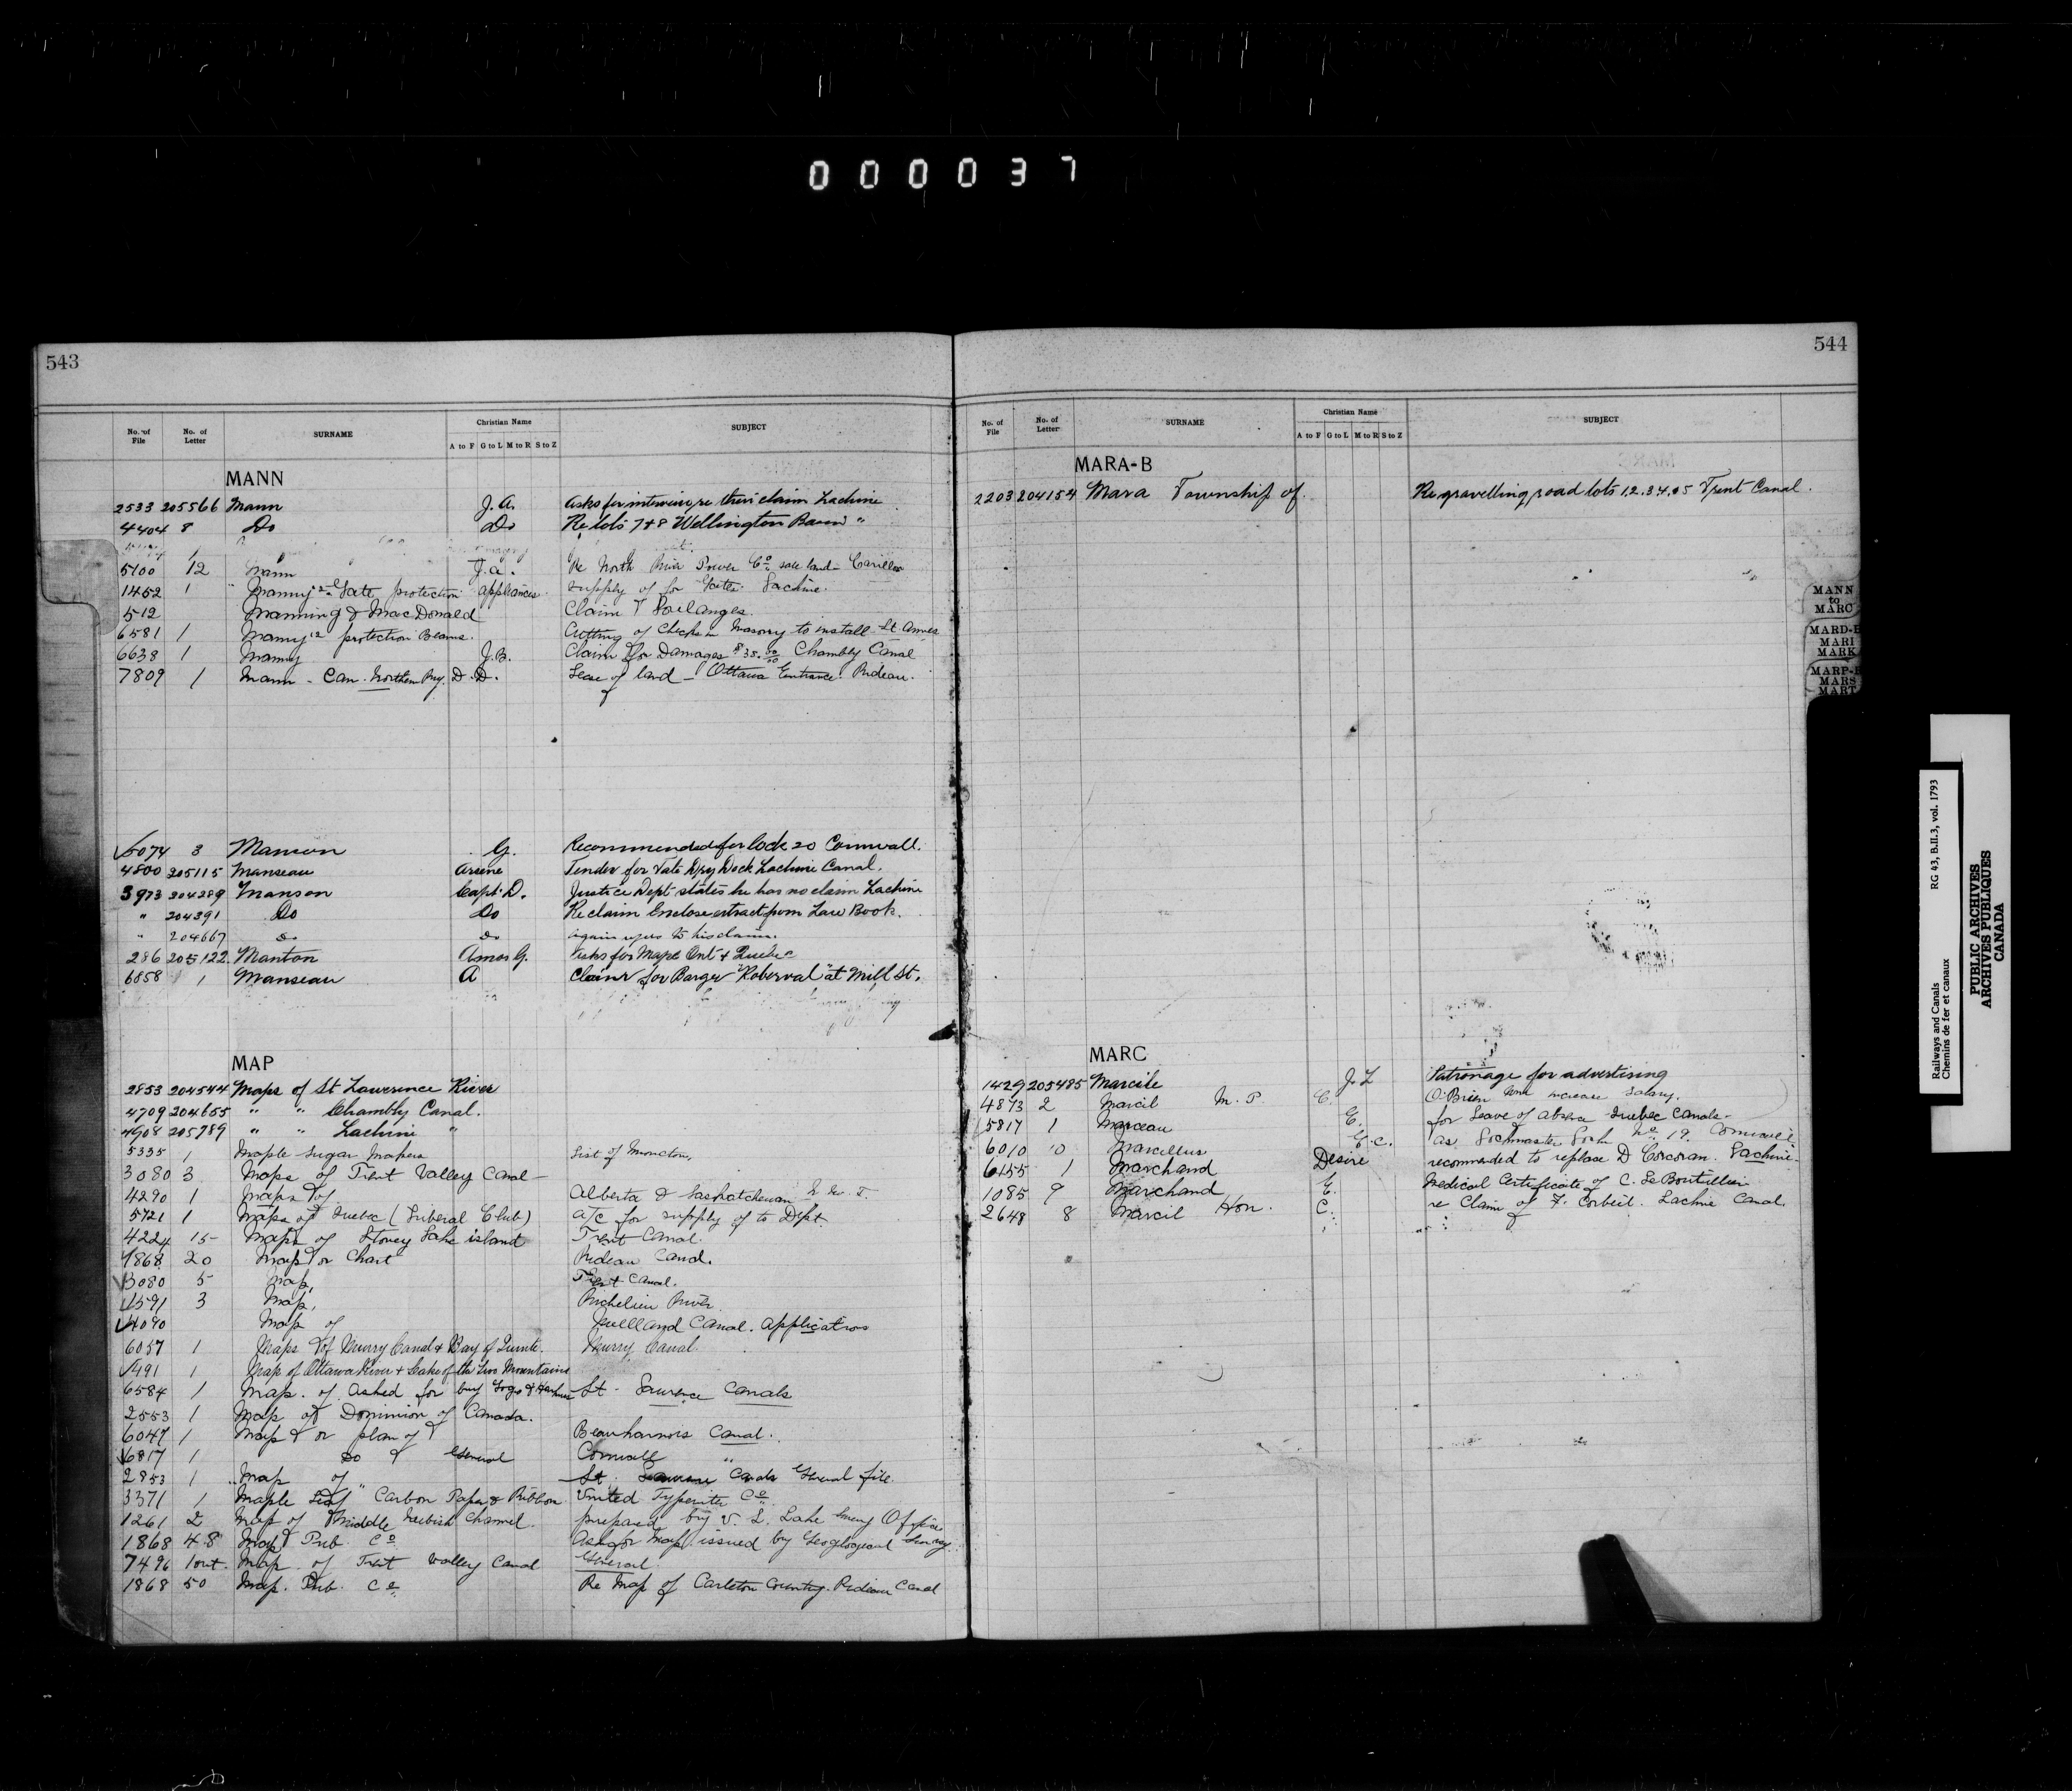 000037
543
No. of File No. of Letter SURNAME Christian Name A to F G to L M to R S to Z SUBJECT
MANN
2533 205566 Mann J. A. Asks for interview re their claim Lachine
4404 8 Do Do Re lots 7 & 8 Wellington Basin "
5100 12 Mann J. A. Re North River Power Co. sale land Carillon
1452 1 Gate protection appliances supply of for Gates Lachine.
512 Manning & MacDonald Claim Soulanges.
6581 1 protection Beams. Cutting of Checks in Masonry to install St. Annes
6638 1 Manny J. B. Claim for Damages Chambly Canal
7809 1 Mann - Can. Northern Ry. D. D. Lease of land - Ottawa Entrance. Rideau.
5074 3 Manson G. Recommended for lock 20 Cornwall.
4800 205115 Manseau Arsene Tender for Tate Dry Dock Lachine Canal.
3973 204289 Manson Capt. D. Justice Dept. states he has no claim Lachine
" 204391 Do Do Re claim Enclose extract from Law Book.
" 204667 Do Do Again refers to his claim.
286 205122 Manton Amos G. Asks for Maps Ont & Quebec
6858 1 Manseau A Claim for Barge "Roberval" at Mill St.
MAP
2853 204544 Maps of St Lawrence River
4709 204655 " " Chambly Canal.
4908 205789 " " Lachine "
5335 1 Maple Sugar Makers List of Moncton.
3080 3 Maps of Trent Valley Canal -
4290 1 Maps of Alberta & Saskatchewan N. W. T.
5721 1 Maps of Quebec (Liberal Club) A/c for supply of to Dept.
4224 15 Maps of Stoney Lake island Trent Canal.
1868 20 Map or Chart Rideau Canal.
3080 5 Map, Trent Canal.
1591 3 Map, Richelieu River
4090 Map of Welland Canal. Application
6057 1 Maps of Murry Canal & Bay of Quinte. Murry Canal
491 1 Map of Ottawa River & Lake of the Two Mountains
6584 1 Map. of. asked for by St. Lawrence Canals
2553 1 Map of Dominion of Canada.
6047 1 Map or plan of Beauharnois Canal.
6817 1 Do General Cornwall "
2853 1 Map of St. Lawrence Canals General file.
3371 1 "Maple Leaf" Carbon Paper & Ribbon United Typewriter Co.
1261 2 Map of Middle Neebish Channel. prepared by U. S. Lake Survey Office
1868 48 Map Pub. Co. Ask for Map issued by Geological Survey
7496 1 Map of Trent Valley Canal General.
1868 50 Map. Pub. Co. Re Map of Carleton County. Rideau Canal
544
No. of File No. of Letter SURNAME Christian Name A to F G to L M to R S to Z SUBJECT
MARA-B
2203 204154 Mara Township of. Re gravelling road lots 1.2.3.4.05 Trent Canal.
MARC
1429 205485 Marcile J. L Patronage for advertising
4873 2 Marcil M. P. C. O'Brien increase salary.
5817 1 Marceau E. for Leave of absence Quebec Canals -
6010 10 Marcellus as Lockmaster Lock No. 19. Cornwall.
6155 1 Marchand Desire recommended to replace D Corcoran. Lachine -
1085 9 Marchand E. Medical Certificate of C. Le Boutillier
2648 8 Marcil Hon. C. re Claim of F. Corbeil. Lachine Canal.
MANN
to
MARC
MARD-E
MARI
MARK
MARP-R
MARS
MART
Railways and Canals RG 43, B.II.3, vol. 1793
Chemins de fer et canaux
PUBLIC ARCHIVES
ARCHIVES PUBLIQUES
CANADA